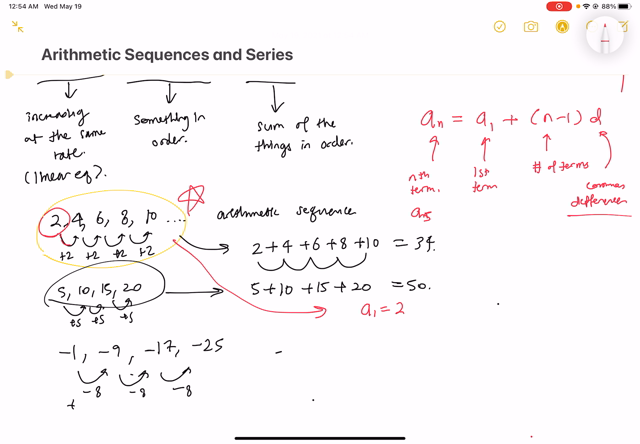 12:54 AM Wed May 19
88%
Arithmetic Sequences and Series
increasing at the same rate. (linear eq).
Something in order.
sum of the things in order.
1
an = a1 + (n-1) d
nth term.
1st term
# of terms
common difference
2, 4, 6, 8, 10 ....
arithmetic sequence
+2 +2 +2 +2
2 + 4 + 6 + 8 + 10 = 34.
5, 10, 15, 20
5 + 10 + 15 + 20 = 50.
+5 +5 +5
a1 = 2
-1, -9, -17, -25
-
-8 -8 -8
+